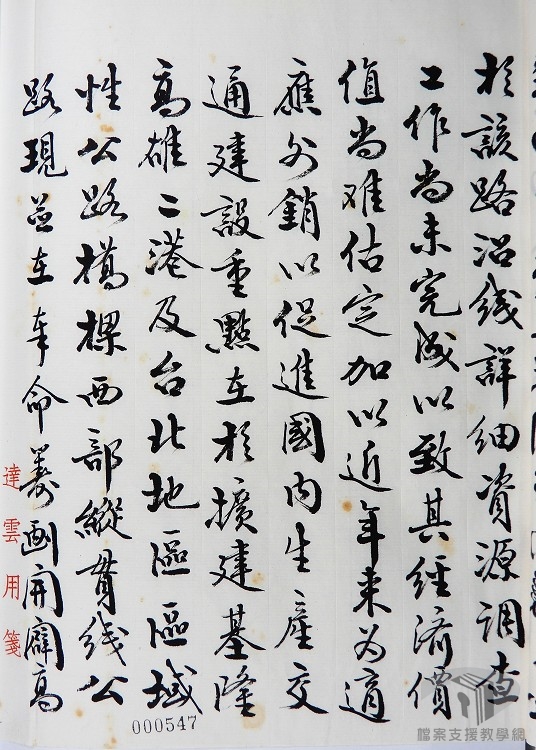 於該路沿线詳細資源調查
工作尚未完成以致其經濟價
值尚难估定加以近年来为適
應外銷以促進國内生產交
通建設重點在於擴建基隆
高雄二港及台北地區區域
性公路橋樑西部縱貫线公
路現並在奉命籌劃開闢高
達雲用箋
000547
檔案支援教學網